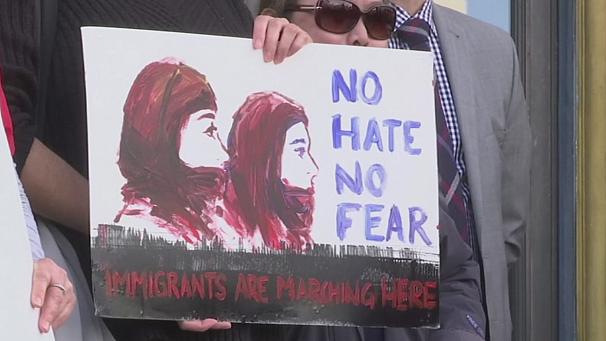 NO
HATE
NO
FEAR
IMMIGRANTS ARE MARCHING HERE